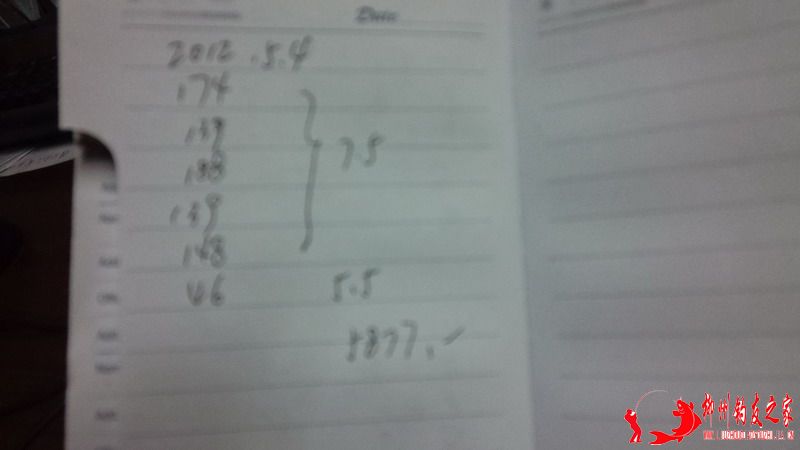 Date
2012.5.4
174
139
188
139
148
46
7.5
5.5
柳州钓友之家